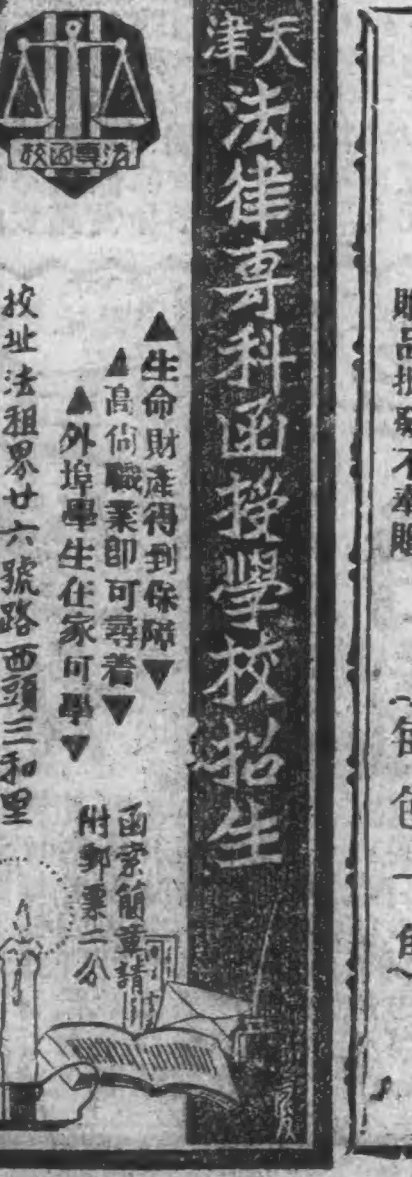 贈品
不
(每包一角)
天津
法律專科函授學校招生
▲生命財產得到保障▼
▲高尚職業即可尋着▼
▲外埠學生在家可學▼
函索簡章請
附郵票二分
法專函校
校址法租界廿六號路西頭三和里